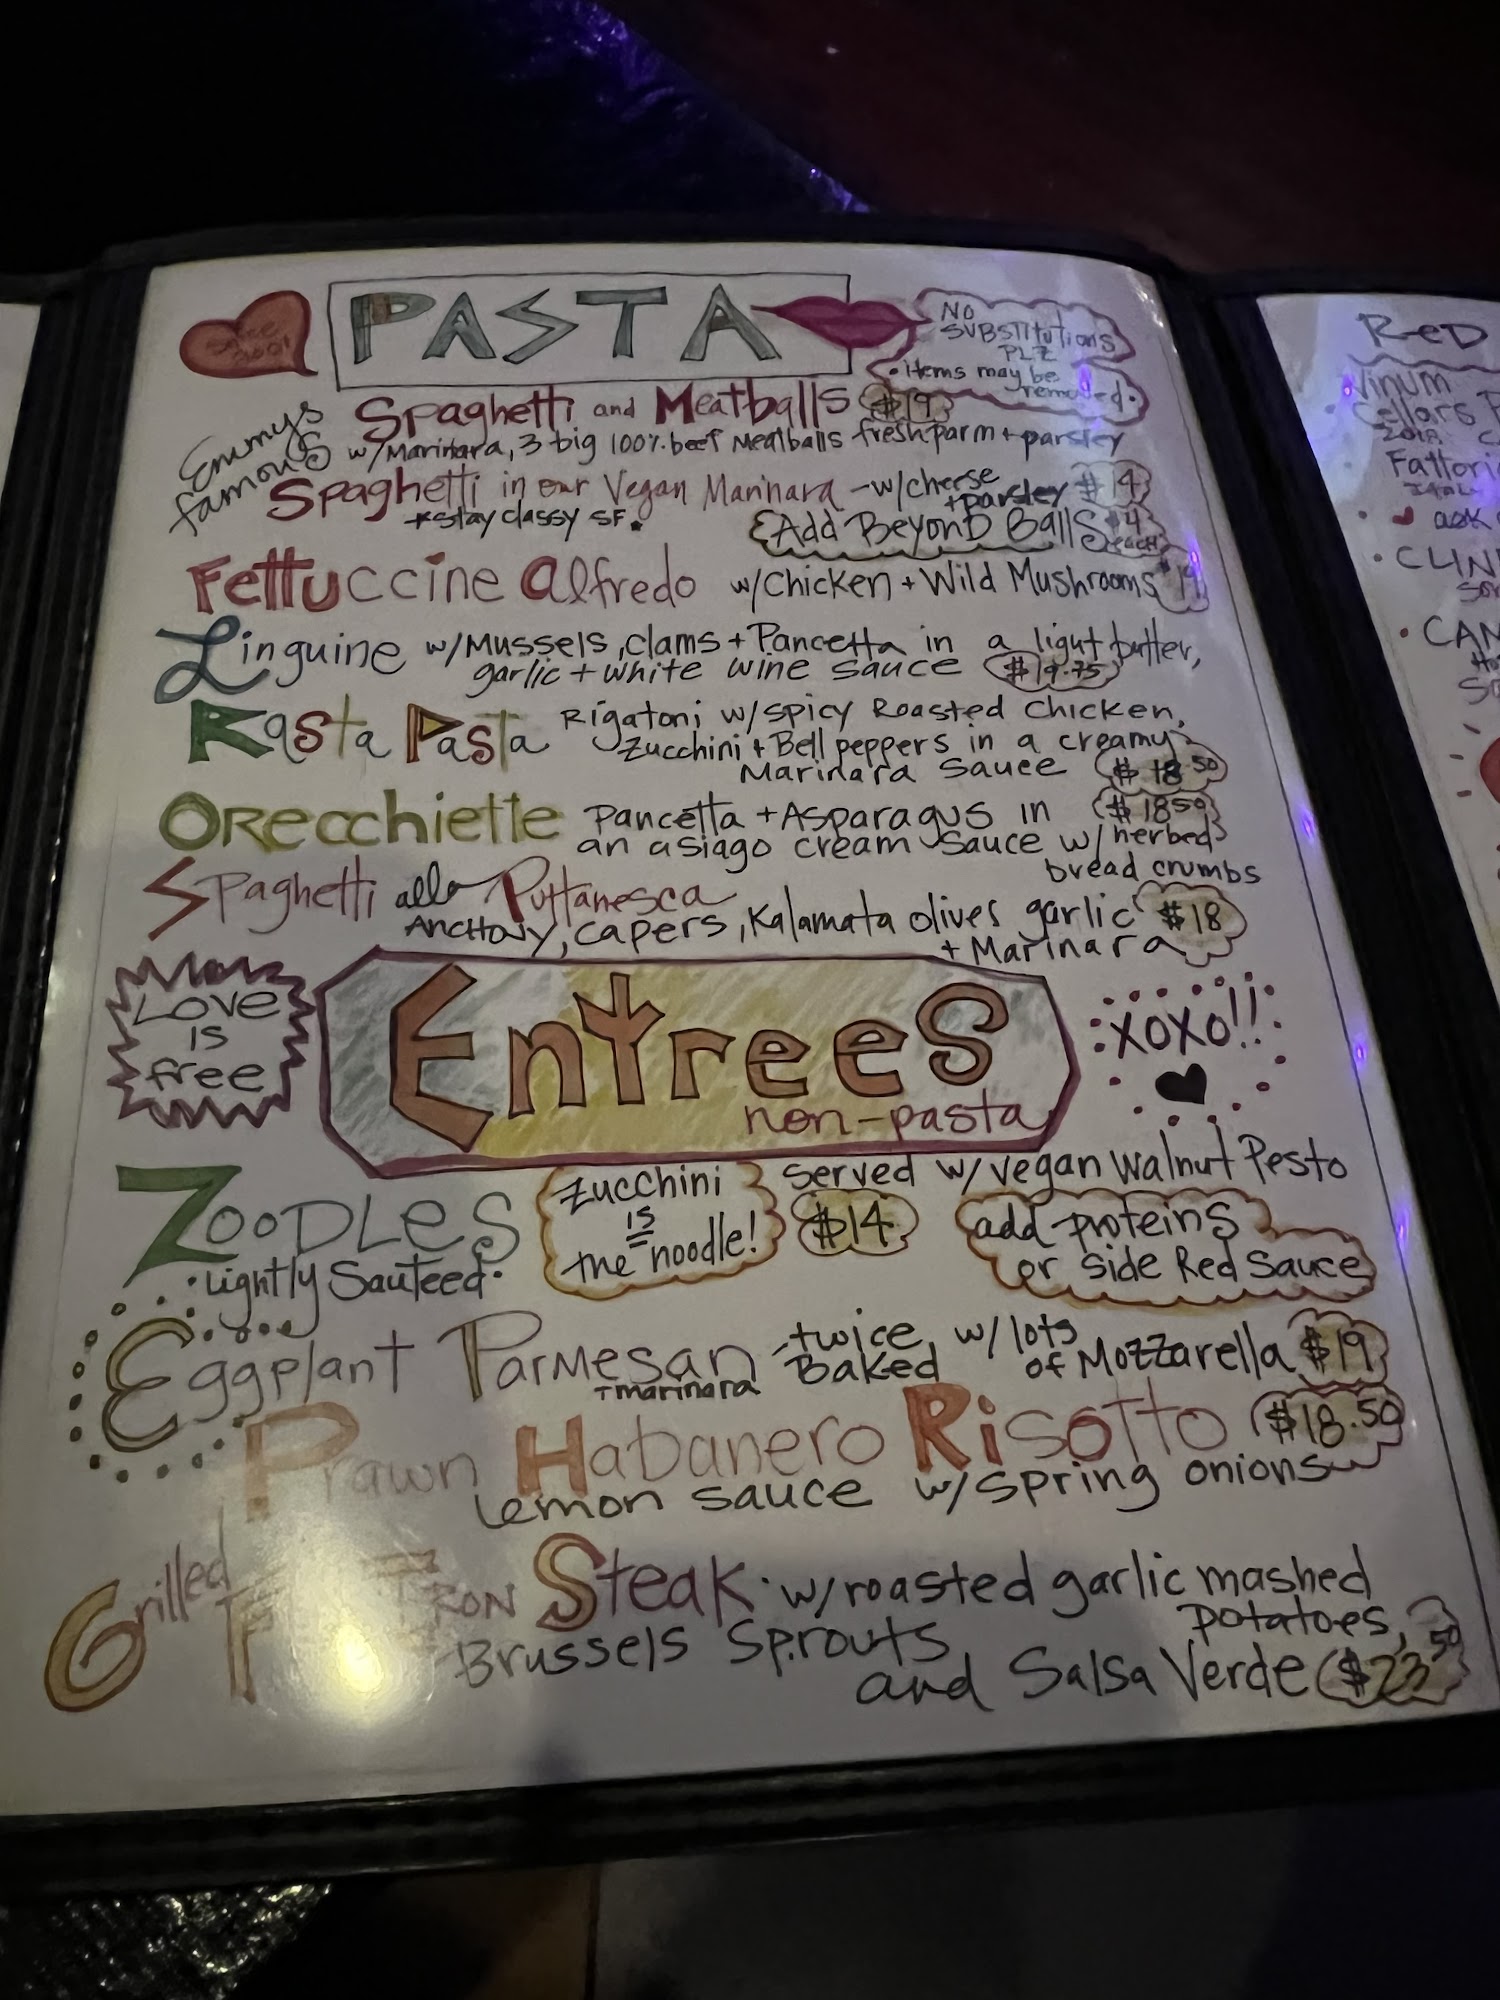 Since
2001
PASTA
NO
SUBSTITUTIONS
PLZ
• Items may be
removed.
Emmys
famous
Spaghetti and Meatballs $19
w/Marinara, 3 big 100% beef Meatballs fresh parm + parsley
Spaghetti in our Vegan Marinara - w/cheese
+ parsley $14
*stay classy SF.
Add Beyond Balls $4
each
Fettuccine alfredo w/Chicken + Wild Mushrooms $19
Linguine w/Mussels, clams + Pancetta in a light butter,
garlic + white wine sauce $19.75
Rasta Pasta Rigatoni w/spicy Roasted Chicken,
Zucchini + Bell peppers in a creamy
Marinara Sauce $18.50
Orecchiette Pancetta + Asparagus in $18 50
an asiago cream sauce w/herbed
bread crumbs
Spaghetti alla Puttanesca
Anchovy, capers, Kalamata olives garlic $18
+ Marinara
Love
is
free
Entrees
non-pasta
XOXO!!
Zoodles
• Lightly Sauteed •
Zucchini
is
the noodle!
served w/vegan walnut Pesto
$14
add proteins
or side Red Sauce
Eggplant Parmesan - twice Baked w/lots of Mozzarella $19
+ marinara
Prawn Habanero Risotto $18.50
Lemon sauce w/spring onions
Grilled Iron Steak • w/roasted garlic mashed
potatoes,
Brussels Sprouts
and Salsa Verde $23 50
Red
Vinum
Cellars
2018
Fattori
ask
CAN